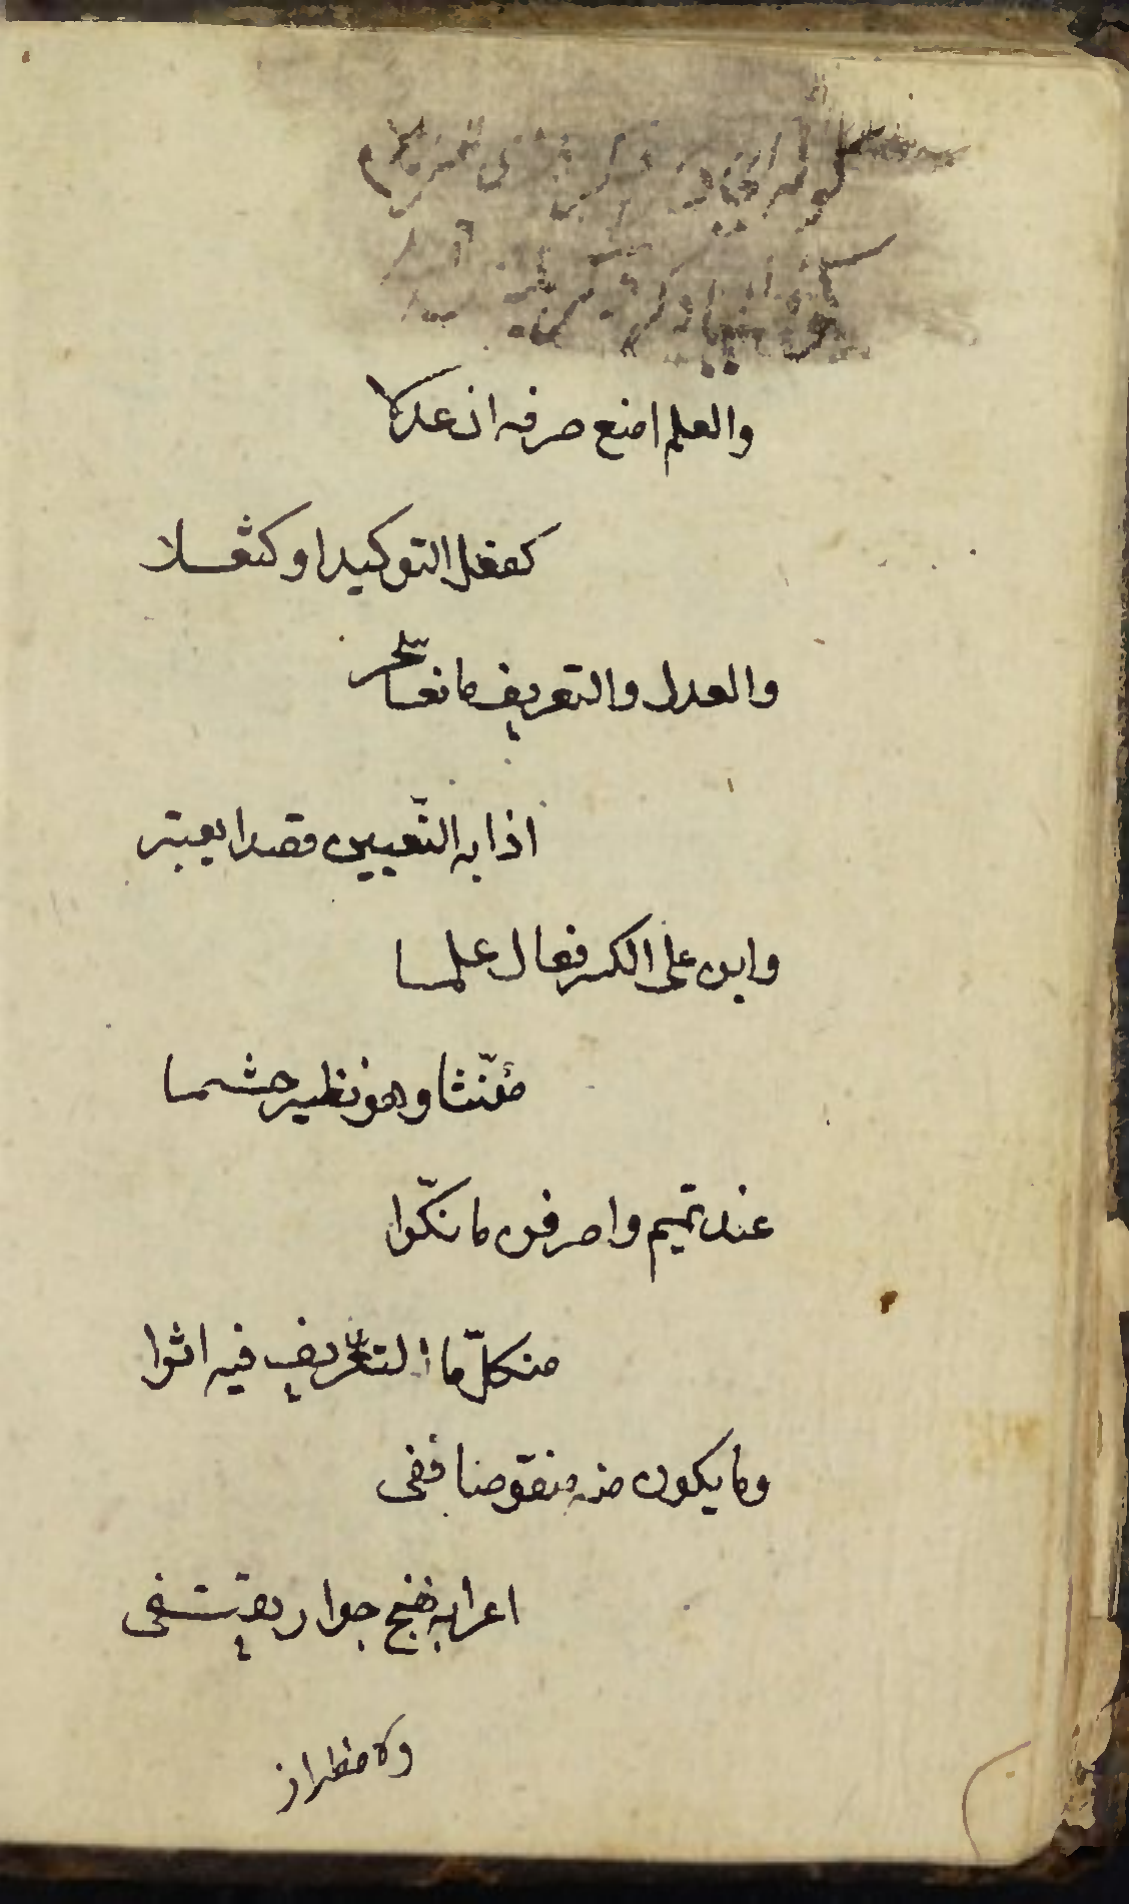 والعلم امنع صرفه ان عدلا
كفعل التوكيد او كثعلا
والعدل والتعريف مانعا سحر
اذا به التعيين قصدا يعتبر
وابن على الكسر فعال علما
مؤنّثا وهو نظير جشما
عند تميم واصرفن ما نكّرا
من كلّ ما التعريف فيه اثرا
وما يكون منه منقوصا ففى
اعرابه نهج جوار يقتفى
ولاضطرار